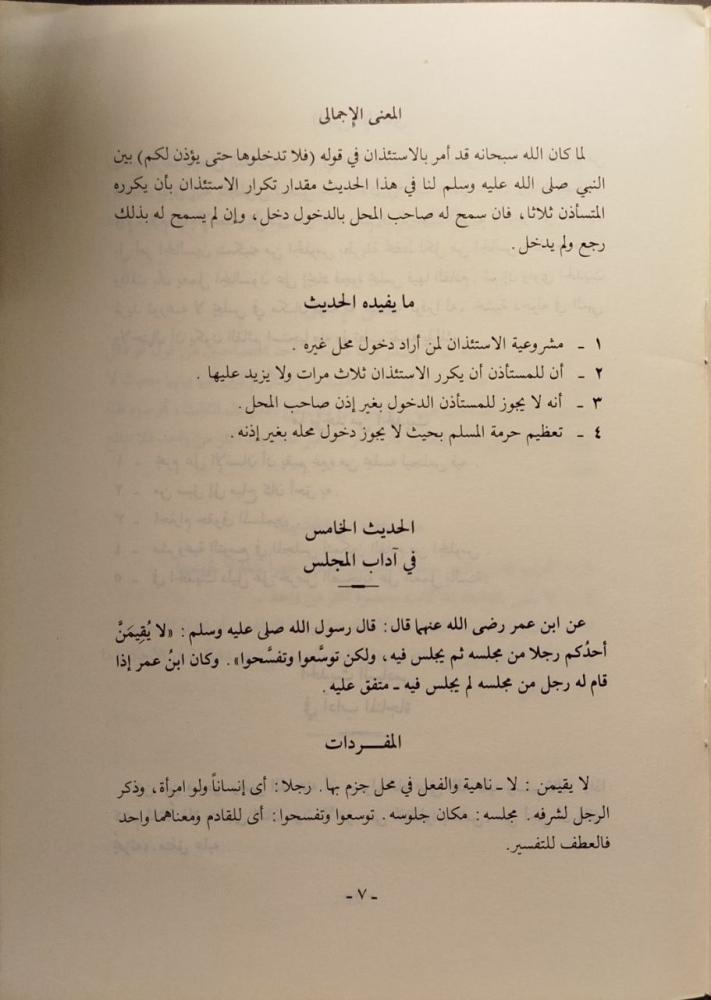 المعنى الإجمالى
لما كان الله سبحانه قد أمر بالاستئذان في قوله (فلا تدخلوها حتى يؤذن لكم) بين
النبي صلى الله عليه وسلم لنا في هذا الحديث مقدار تكرار الاستئذان بأن يكرره
المتسأذن ثلاثا، فان سمح له صاحب المحل بالدخول دخل، وإن لم يسمح له بذلك
رجع ولم يدخل.
ما يفيده الحديث
١ - مشروعية الاستئذان لمن أراد دخول محل غيره .
٢ - أن للمستأذن أن يكرر الاستئذان ثلاث مرات ولا يزيد عليها .
٣ - أنه لا يجوز للمستأذن الدخول بغير إذن صاحب المحل.
٤ - تعظيم حرمة المسلم بحيث لا يجوز دخول محله بغير إذنه.
الحديث الخامس
في آداب المجلس
عن ابن عمر رضى الله عنهما قال: قال رسول الله صلى عليه وسلم: «لا يُقِيمَنَّ
أحدُكم رجلا من مجلسه ثم يجلس فيه، ولكن توسَّعوا وتفسَّحوا». وكان ابنُ عمر إذا
قام له رجل من مجلسه لم يجلس فيه - متفق عليه.
المفـــردات
لا يقيمن : لا - ناهية والفعل في محل جزم بها. رجلا: أى إنساناً ولو امرأة، وذكر
الرجل لشرفه. مجلسه: مكان جلوسه. توسعوا وتفسحوا: أى للقادم ومعناهما واحد
فالعطف للتفسير.
- ٧ -